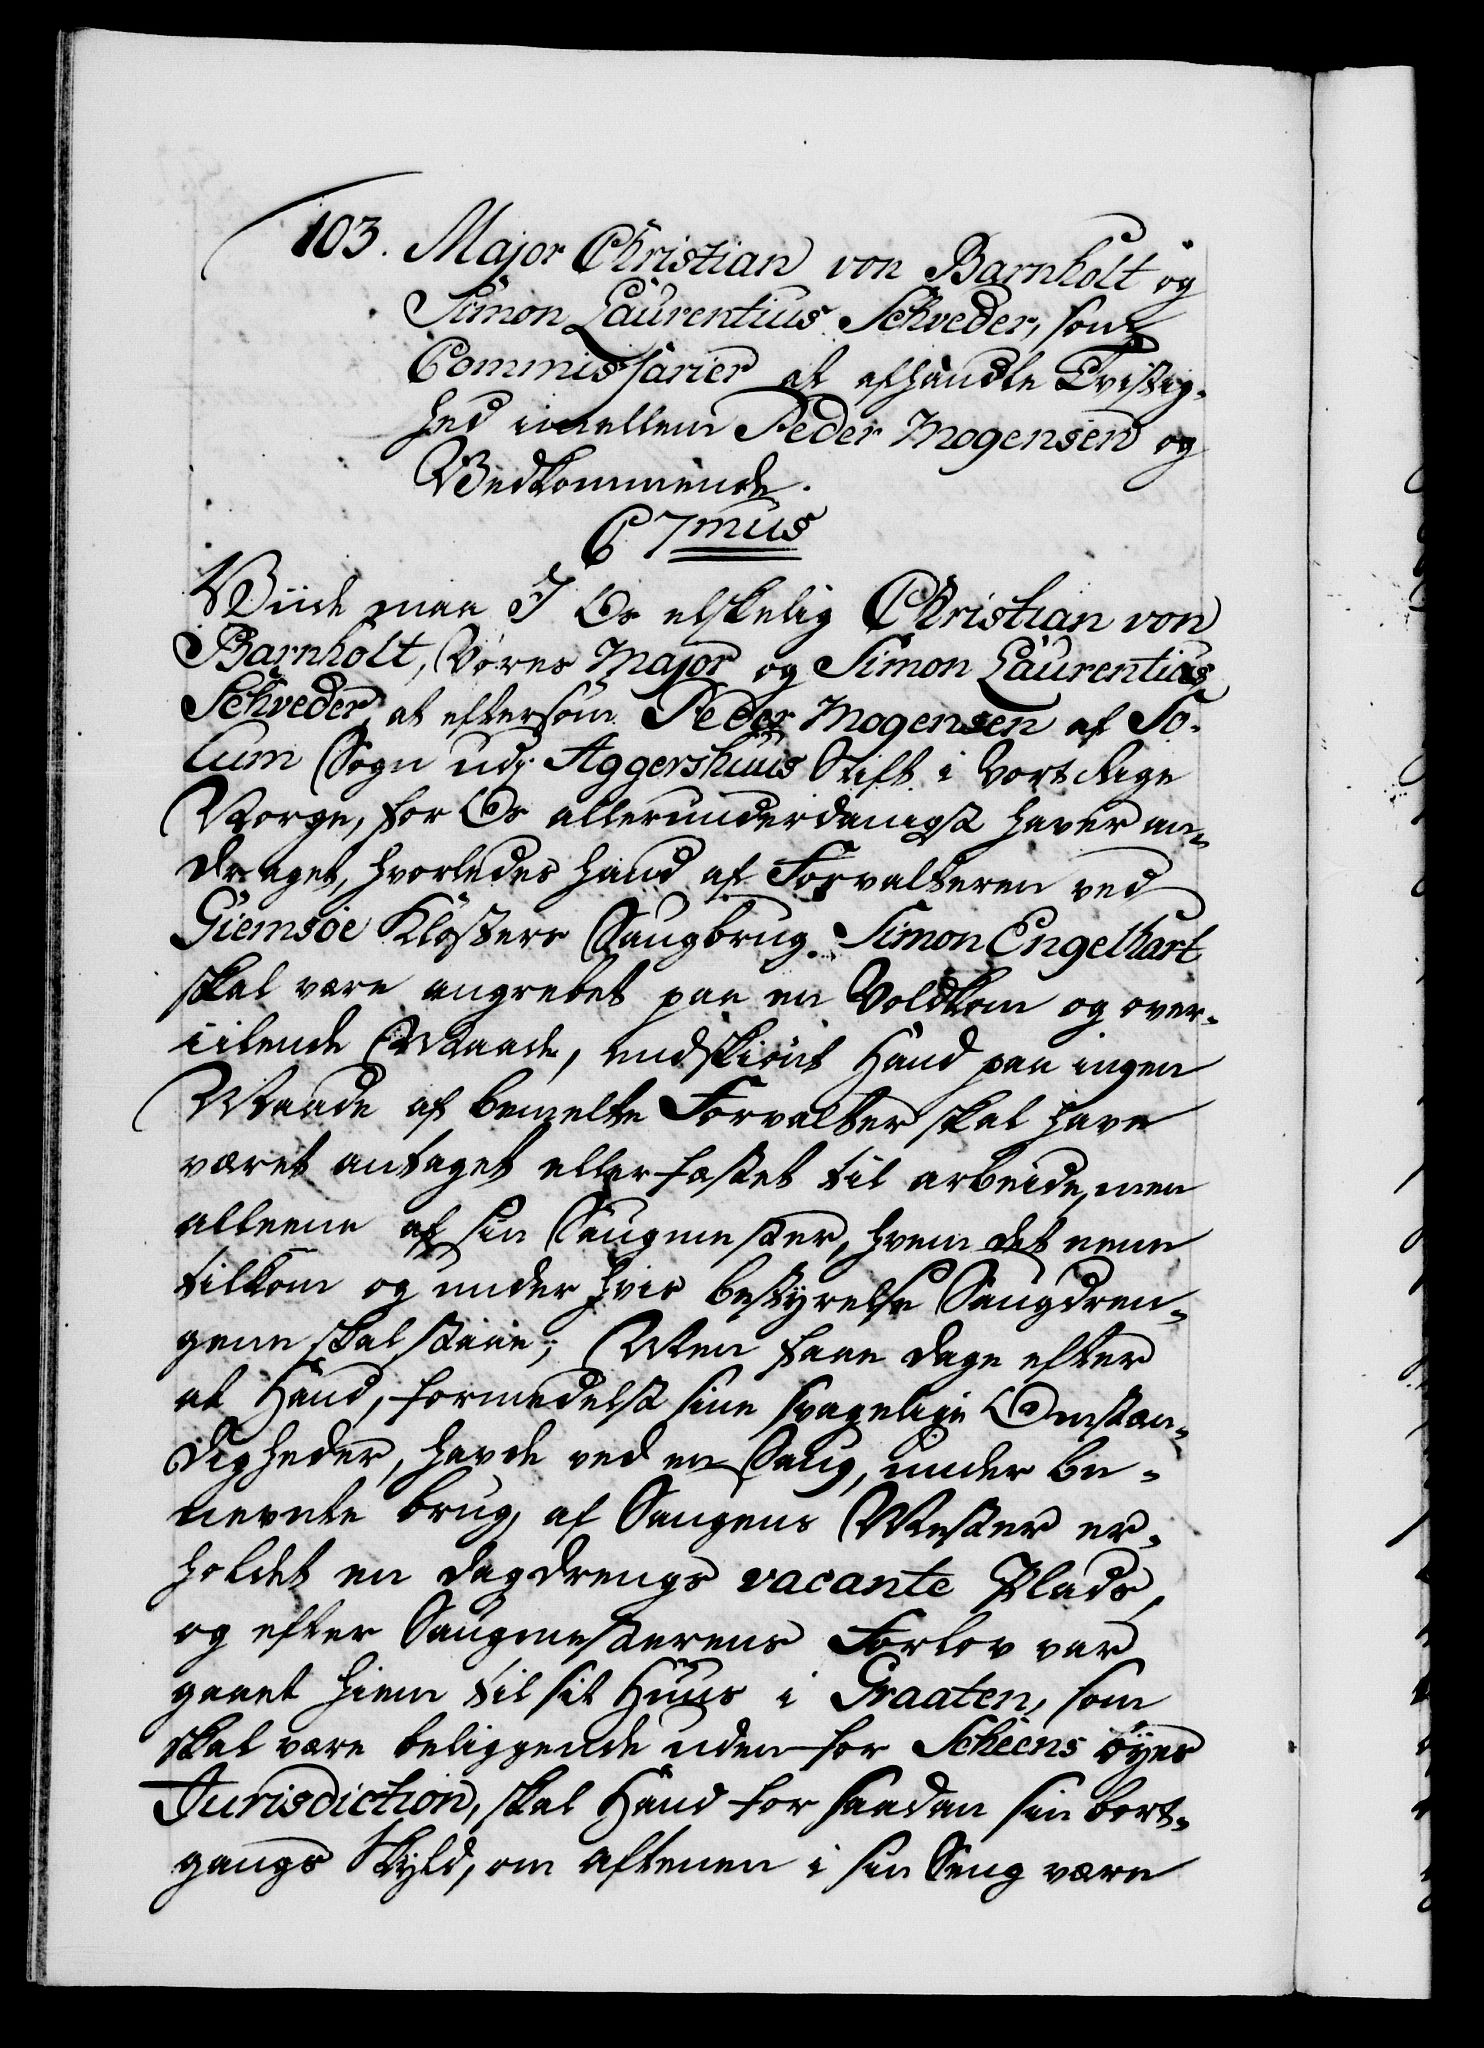 103. Major Christian von Barnholt og
Simon Laurentius Schveder, som
Commissarier at afhandle Tvistig-
hed imellem Peder Mogensen og
Vedkommende.
C 7mus
Viide maa I Os elskelig Christian von
Barnholt, Vores Major og Simon Laurentius
Schveder, at eftersom Peder Mogensen af So-
lum Sogn udj Aggershuus Stift i Vort Rige
Norge, for Os allerunderdanigst haver an-
draget, hvorledes hand af Forvalteren ved
Giemsøe Klosters Saugbrug Simon Engelhart
skal være angrebet paa en Voldsom og over-
iilende Maade, endskiønt Hand paa ingen
Maade af bemelte Forvalter skal have
været antaget eller fæstet til arbeide, men
alleene af sin Saugmester, hvem det eene
tilkom og under hvis bestyrelse Saugdren-
gene skal staae; Men faae dage efter
at Hand, formedelst sine svagelige Omstæn-
digheder, havde ved en Saug, under be-
nevnte brug, af Saugens Mester er-
holdet en dagdrengs vacante Plads,
og efter Saugmesterens Forlov var
gaaet hiem til sit Huus i Graaten, som
skal være beliggende uden for Scheens Byes
Jurisdiction, skal Hand for saadan sin bort-
gangs Skyld, om aftenen i sin Seng være